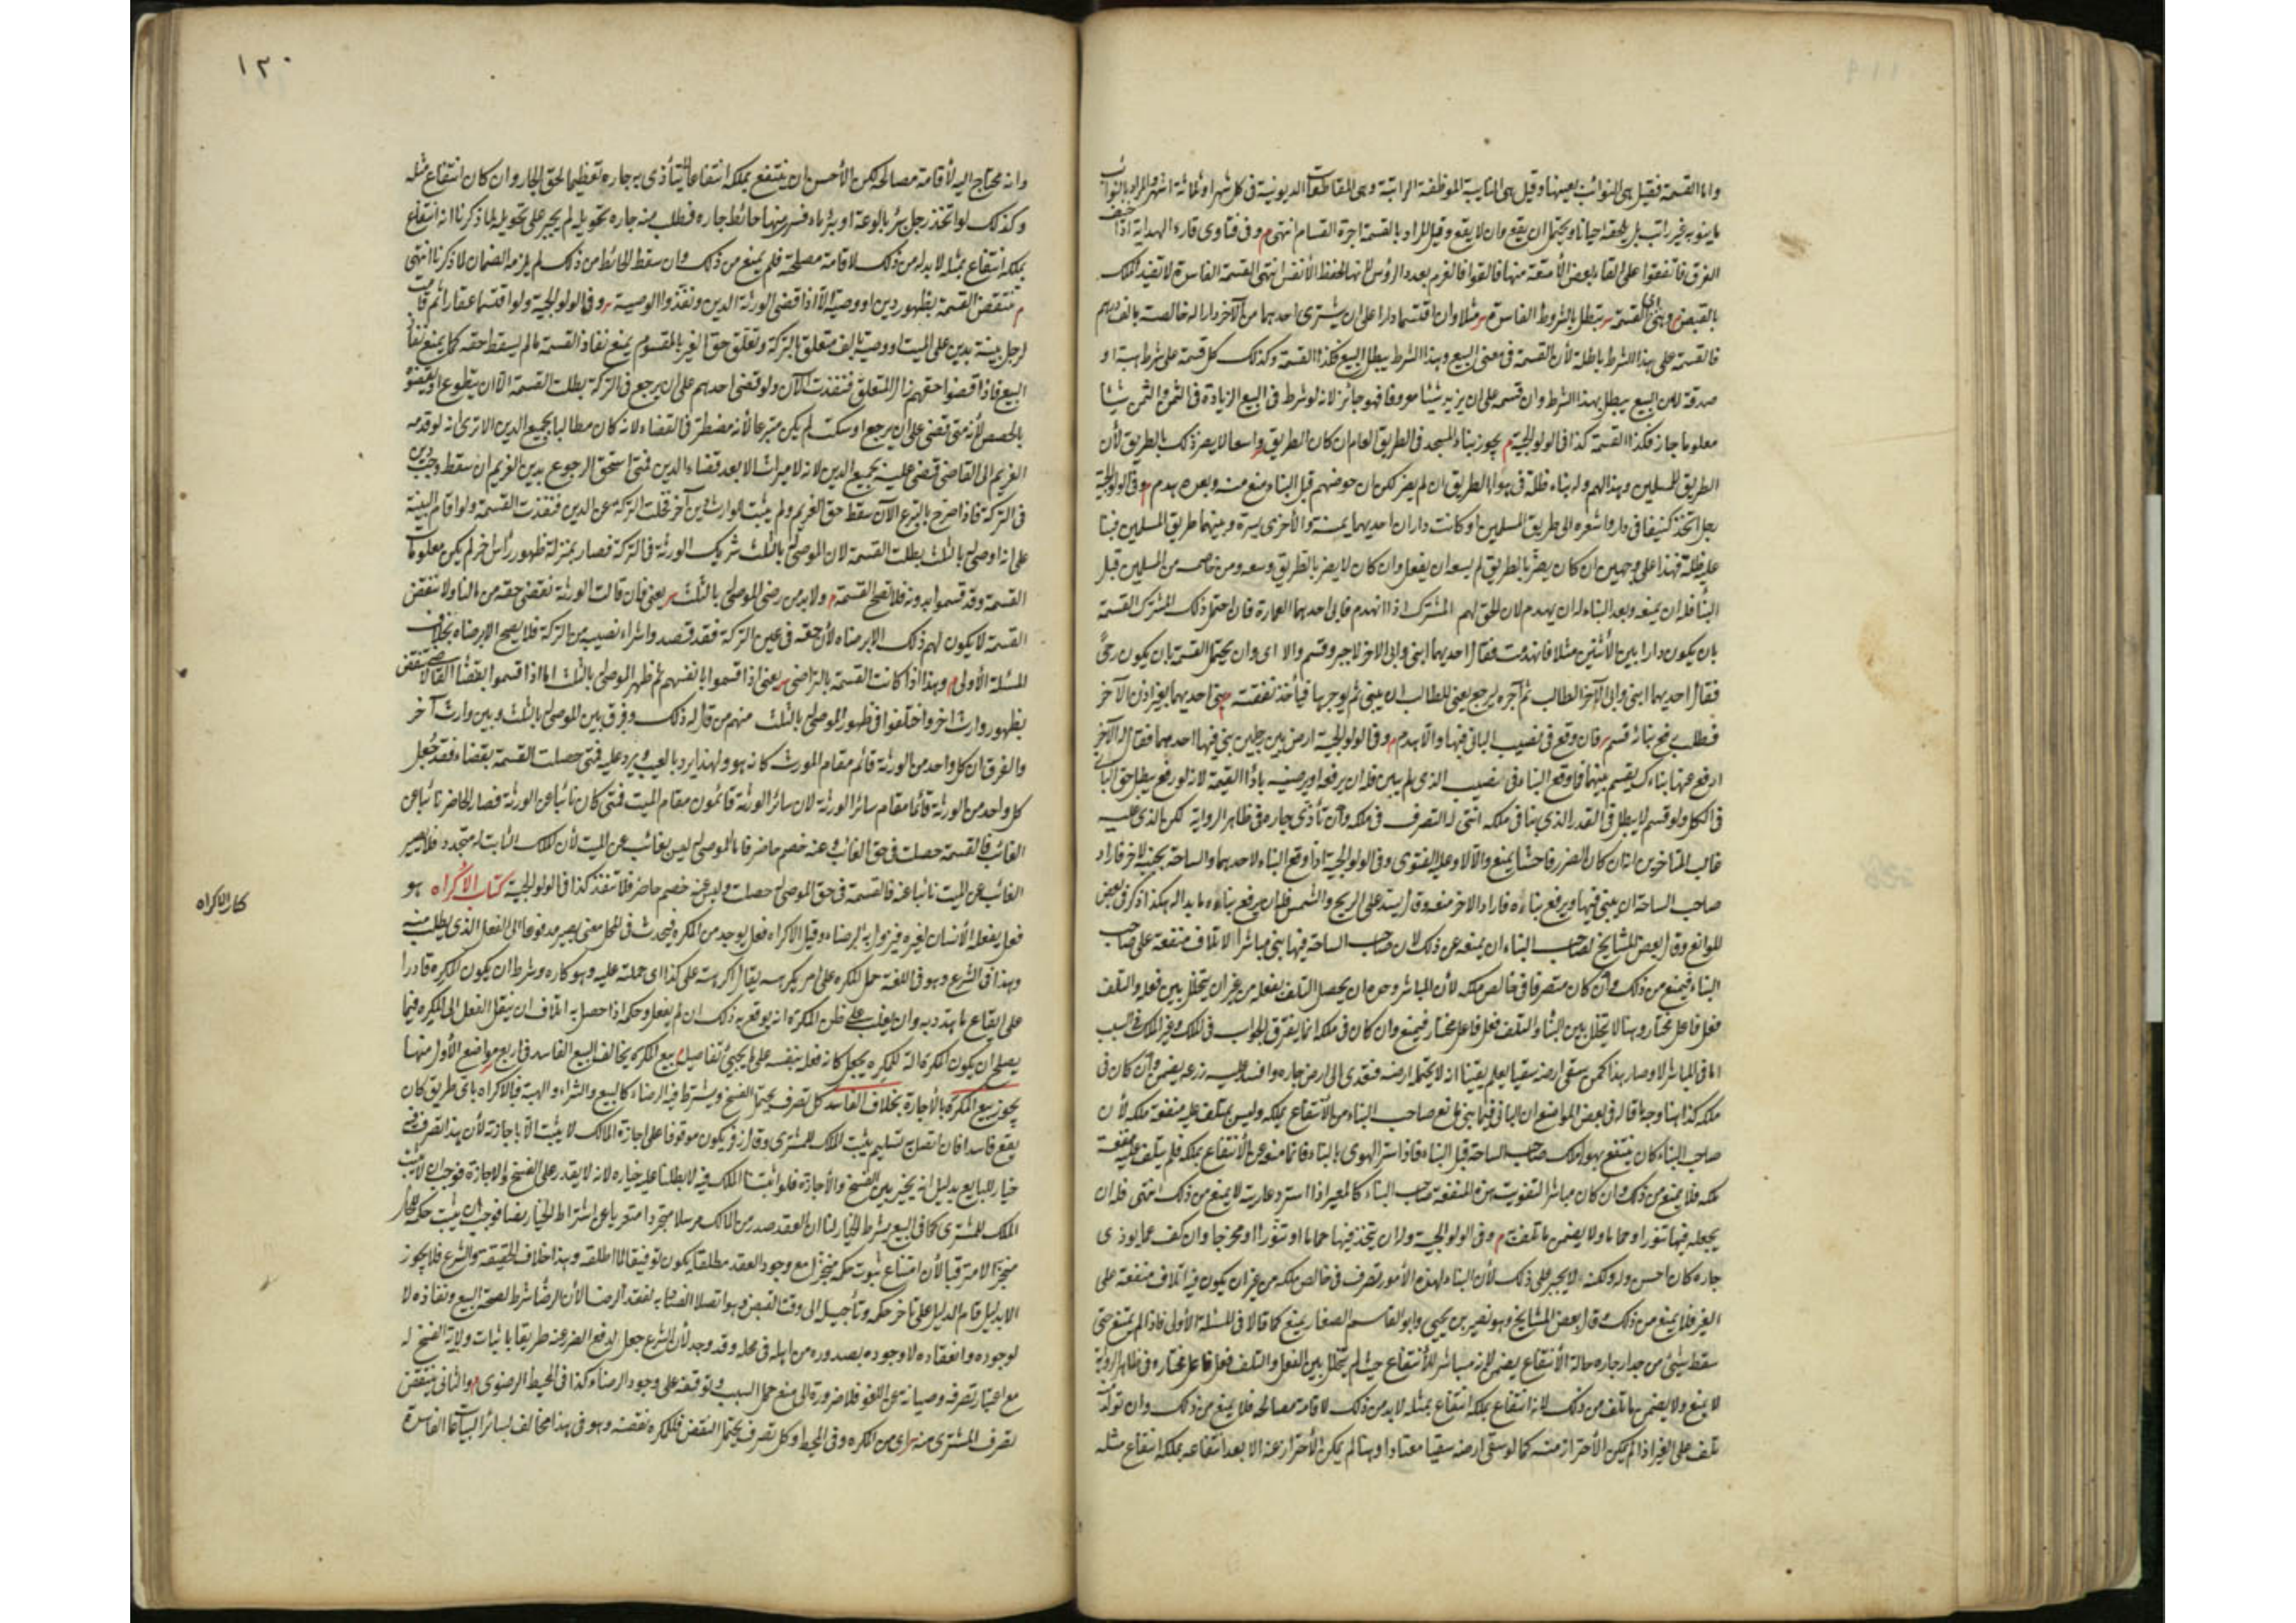 واما القسمة فقيل هى النوائب بعينها وقيل هى النايبة الموظفة الراتبة وهى المقاطعات الديونية فى كل شهر او ثلاثة اشهر والمراد بالنوائب
ما ينوبه غير راتب بل يلحقه احيانا ويحتمل ان يقع وان لا يقع وقيل المراد بالقسمة اجرة القسام انتهى م وفى فتاوى قارء الهداية اذا خيف
الغرق فاتفقوا على القاء بعض الأمتعة منها فالقوا فالغرم بعدد الرؤس لانها لحفظ الأنفس انتهى القسمة الفاسدة لا تفيد الملك
بالقبض م وهى اى القسمة تبطل بالشروط الفاسدة مثلا وان اقتسما دارا على ان يشترى احدهما من الآخر دارا له خالصة بالف درهم
فالقسمة على هذا الشرط باطلة لأن القسمة فى معنى البيع وبهذا الشرط يبطل البيع فكذا القسمة وكذلك كل قسمة على شرط هبة او
صدقة لان البيع يبطل بهذا الشرط وان قسمه على ان يزيد شيئا معروفا فهو جائز لانه لو شرط فى البيع الزيادة فى الثمن والثمن شيئا
معلوما جاز فكذا القسمة كذا فى الولوالجية م يجوز بناء المسجد فى الطريق العام ان كان الطريق واسعا لا يضر ذلك بالطريق لأن
الطريق للمسلمين وهذا لهم وله بناء ظلة فى هواء الطريق ان لم يضر لكن ان خوصم قبل البناء منع منه وبعده هدم م وفى الولوالجية
رجل اتخذ كنيفا فى داره واشرعه الى طريق المسلمين او كانت داران احديهما يمنة والأخرى يسرة وبينهما طريق المسلمين فبنا
عليه ظلة فهذا على وجهين ان كان يضر بالطريق لم يسعه ان يفعل وان كان لا يضر بالطريق وسعه ومن خاصمه من المسلمين قبل
البناء فله ان يمنعه وبعد البناء له ان يهدم لان الحق لهم المشترك اذا انهدم فابى احدهما العمارة فان احتمل ذلك المشترك القسمة
بان يكون دارا بين الأثنين مثلا فانهدمت فقال احديهما ابنى وابى الاخر لا جبر وقسم والا اى وان لم يحتمل القسمة بان يكون رحى
فقال احديهما ابنى وابى الآخر الطالب ثم آجره ليرجع يعنى للطالب ان يبنى ثم يوجرها فيأخذ نفقته م بنى احديهما بغير اذن الآخر
فطلب رفع بنائه قسم فان وقع فى نصيب البانى فبها والا هدم م وفى الولوالجية ارض بين رجلين بنى فيها احدهما فقال له الآخر
ارفع عنها بناءك يقسم بينهما فاوقع البناء فى نصيب الذى لم يبن فله ان يرفعه او يرضيه باداء القيمة لانه لو رفع يبطل حق البانى
فى الكل ولو قسم لا يبطل فى القدر الذى بنا فى ملكه انتهى له التصرف فى ملكه وان تأذى جاره فى ظاهر الرواية لكن الذى عليه
غالب المتأخرين انه ان كان الضرر فاحشا يمنع والا لا وعليه الفتوى وفى الولوالجية اذا وقع البناء لاحدهما والساحة بجنبه لاخر فاراد
صاحب الساحة ان يبنى فيها ويرفع بناءه فاراد الاخر منعه وقال يسد على الريح والشمس فله ان يرفع بناءه ما بدا له هكذا ذكر فى بعض
المواضع وقال بعض المشايخ لصاحب البناء ان يمنعه عن ذلك لان صاحب الساحة فيما يبنى مباشرا الاتلاف منفعة على صاحب
البناء فيمنع من ذلك وان كان متصرفا فى خالص ملكه لأن المباشر وهو ان يحصل التلف بفعله من غير ان يتخلل بين فعله والتلف
فعل فاعل مختار وهنا لا يتخلل بين البناء والتلف فعل فاعل مختار فيمنع وان كان فى ملكه انما يفترق الجواب فى الملك وغير الملك فى السبب
اما فى المباشر لا وصار هذا كمن سقى ارضه سقيا يعلم يقينا انه لا يحتمله ارضه فتعدى الى ارض جاره وافسد عليه زرعه يضمن وان كان فى
ملكه كذا هنا وجه ما قاله فى بعض المواضع ان البانى فيما بنى مانع صاحب البناء من الانتفاع بملكه وليس بمتلف عليه منفعة ملكه لأن
صاحب البناء كان ينتفع بهواء ملك صاحب الساحة قبل البناء فاذا ستر الهوى بالبناء فانما منعه عن الأنتفاع بملكه فلم يتلف عليه منفعة
ملكه فلا يمنع من ذلك وان كان مباشرا لتفويت هذه المنفعة صاحب البناء كالمعير اذا استرد عاريته لا يمنع من ذلك انتهى فله ان
يجعله فيها تنورا وحماما ولا يضمن ما تلف به م وفى الولوالجية وله ان يتخذ فيها حماما او تنورا او مخرجا وان كف عما يوذى
جاره كان احسن له ولكنه لا يجبر على ذلك لأن البناء لهذه الأمور تصرف فى خالص ملكه من غير ان يكون فيه اتلاف منفعة على
الغير فلا يمنع من ذلك وقال بعض المشايخ وهو نصير بن يحيى وابو القاسم الصفار يمنع كما قالا فى المسئلة الأولى فاذا لم يمنع حتى
سقط شئ من جدار جاره حالة الأنتفاع يضمن لانه مباشر للأنتفاع حيث لم يتخلل بين الفعل والتلف فعل فاعل مختار وفى ظاهر الرواية
لا يمنع ولا يضمن ما تلف من ذلك لانه انتفاع بملكه انتفاع بمثله لا بد من ذلك لاقامة مصالحه فلا يمنع من ذلك وان تولد
تلف على الغير اذا لم يمكن الأحتراز منه كما لو سقى ارضه سقيا معتادا وهنا لم يمكن الأحتراز عنه الا بعد انتفاعه بملكه انتفاع مثله
١٢٠
وانه محتاج اليه لأقامة مصالحه لكن الأحسن ان ينتفع بملكه انتفاعا لا يتأذى به جاره تعظيما لحق الجار وان كان انتفاع مثله
وكذلك لو اتخذ رجل بئر بالوعة او بئر ماء فنز منها حائط جاره فطلب منه جاره تحويله لم يجبر على تحويله لما ذكرنا انه انتفاع
بملكه انتفاع بمثله لا بد له من ذلك لاقامة مصلحته فلم يمنع من ذلك وان سقط الحائط من ذلك لم يلزمه الضمان لما ذكرنا انتهى
م تنتقض القسمة بظهور دين او وصية الا اذا قضى الورثة الدين ونفذوا الوصية وفى الولوالجية ولو اقتسما عقارا ثم قامت
لرجل بينة بدين على الميت او وصية بالف متعلق بالتركة وتعلق حق الغير بالمقسوم يمنع نفاذ القسمة ما لم يسقط حقه كما يمنع نفاذ
البيع فاذا قضوا حقهم زال المتعلق فنفذت الآن ولو قضى احدهم على ان يرجع فى التركة بطلت القسمة الا ان يتطوع او يقضوه
بالحصص لأنه متى قضى على ان يرجع او سكت لم يكن متبرعا لأنه مضطر فى القضاء لانه كان مطالبا بجميع الدين الا ترى انه لو قدمه
الغريم الى القاضى قضى عليه بجميع الدين لانه لا ميراث الا بعد قضاء الدين فمتى استحق الرجوع بدين الغريم ان سقط وجب دين
فى التركة فاذا صرح بالتبرع الآن سقط حق الغريم ولم يثبت للوارث دين آخر فخلت التركة عن الدين فنفذت القسمة ولو اقام البينة
على انه اوصى له بالثلث بطلت القسمة لان الموصى له بالثلث شريك الورثة فى التركة فصار بمنزلة ظهور وارث اخر لم يكن معلوما
القسمة وقد قسموا بدونه فلا تصح القسمة م ولا بد من رضى الموصى له بالثلث يعنى فان قالت الورثة نقضى حقه من مالنا ولا ننقض
القسمة لا يكون لهم ذلك الا برضاه لأن حقه فى عين التركة فقد قصدوا شراء نصيبه من التركة فلا يصح الا برضاه بخلاف
المسئلة الأولى م وهذا اذا كانت القسمة بالتراضى يعنى اذا قسموا بانفسهم ثم ظهر الموصى له بالثلث اما اذا قسموا بقضاء القاضى لا تنتقض
بظهور وارث اخر واختلفوا فى ظهور الموصى له بالثلث منهم من قال له ذلك وفرق بين الموصى له بالثلث وبين وارث آخر
والفرق ان كل واحد من الورثة قائم مقام المورث كانه هو ولهذا يرد بالعيب ويرد عليه فمتى حصلت القسمة بقضاء فقد جعل
كل واحد من الورثة قائما مقام سائر الورثة لان سائر الورثة قائمون مقام الميت فمتى كان نائبا عن الورثة فصار الحاضر نائبا عن
الغائب فالقسمة حصلت فى حق الغائب وعنه خصم حاضر فاما الموصى له ليس بغائب عن الميت لأن الملك الثابت له متجدد فلا يصير
الغائب عن الميت نائبا عنه فالقسمة فى حق الموصى له حصلت وليس عنه خصم حاضر فلا تنفذ كذا فى الولوالجية كتاب الاكراه هو
كتاب الاكراه
فعل يفعله الأنسان بغيره فيزول به الرضاء وقيل الاكراه فعل يوجد من المكره فيحدث فى المحل معنى يصير مدفوعا الى الفعل الذى يطلب منه
وهذا فى الشرع وهو فى اللغة حمل المكره على امر يكرهه يقال اكرهته على كذا اى حملته عليه وهو كاره وشرط ان يكون المكره قادرا
على ايقاع ما هدد به وان يغلب على ظن المكره انه يوقع به ذلك ان لم يفعل وحكمه اذا حصل به اتلاف ان ينقل الفعل الى المكره فيما
يصلح ان يكون المكره الة للمكره يجعل كانه فعل بنفسه على ما يجيئ تفاصيله م بيع المكره يخالف البيع الفاسد فى اربع مواضع الأول منها
يجوز بيع المكره بالأجازة بخلاف الفاسد كل تصرف يحتمل الفسخ ويشترط فيه الرضاء كالبيع والشراء والهبة فبالاكراه باى طريق كان
يقع فاسدا فان اتصل به تسليم يثبت الملك للمشترى وقال زفر يكون موقوفا على اجازة المالك لا يثبت الا باجازته لأن هذا تصرف فيه
خيار للبايع بدليل انه يخير بين الفسخ والأجازة فلو اثبتنا الملك فيه لابطلنا عليه خياره لانه لا يقدر على الفسخ والاجازة فوجب ان لا يثبت
الملك للمشترى كما فى البيع بشرط الخيار لنا ان العقد صدر من المالك مرسلا منجزا متعريا عن اشتراط الخيار نصا فوجب ان يثبت حكمه للحال
منجزا لا مترقبا لأن امتناع ثبوت حكمه منجزا مع وجود العقد مطلقا يكون توقيفا لما اطلقه وهذا خلاف الحقيقة والشرع فلا يجوز
الا بدليل قام الدليل على تأخر حكمه وتأجيله الى وقت القبض وهو اتصال الفساد به لفقد الرضا لأن الرضا شرط لصحة البيع ونفاذه لا
لوجوده وانعقاده لا وجوده بصدوره من اهله فى محله وقد وجد لأن الشرع جعل لدفع الضرر عنه طريقا باثبات ولاية الفسخ له
مع اعتبار تصرفه وصيانته عن اللغو فلا ضرورة الى منع عمل السبب وتوقيفه على وجود الرضاء كذا فى المحيط الرضوى م والثانى ينتقض
تصرف المشترى منه اى من المكره وفى المحيط وكل تصرف يحتمل النقض فللمكره نقضه وهو فى هذا مخالف لسائر البياعات الفاسدة